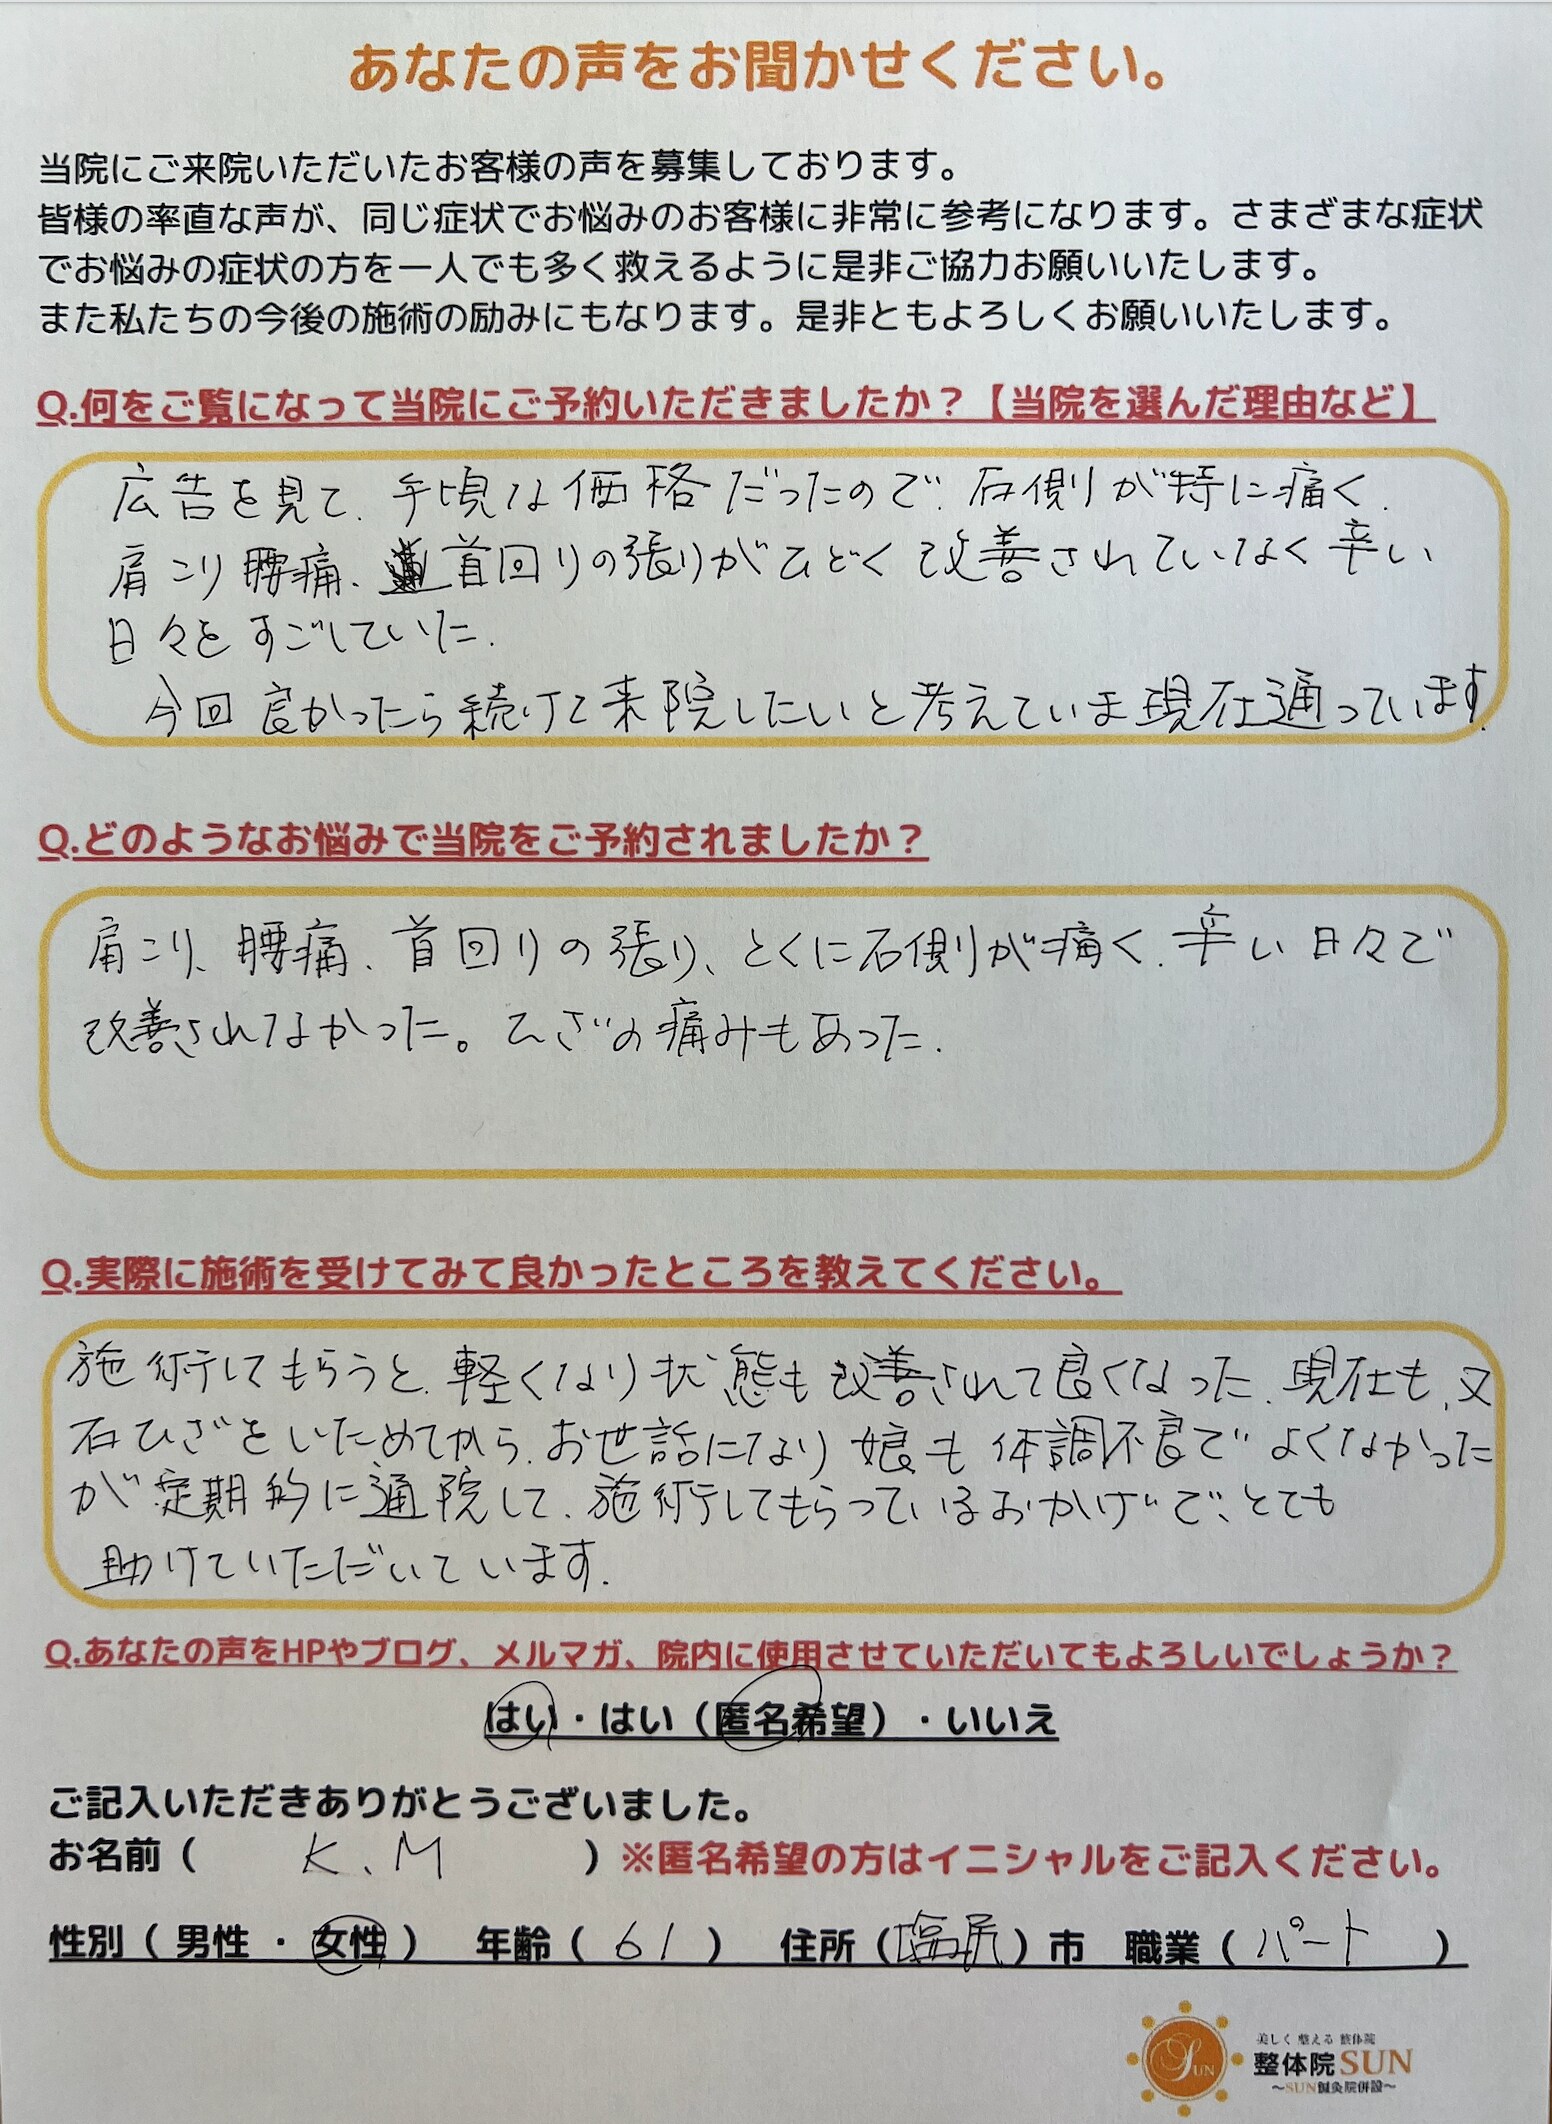 あなたの声をお聞かせください。
当院にご来院いただいたお客様の声を募集しております。
皆様の率直な声が、同じ症状でお悩みのお客様に非常に参考になります。さまざまな症状
でお悩みの症状の方を一人でも多く救えるように是非ご協力お願いいたします。
また私たちの今後の施術の励みにもなります。是非ともよろしくお願いいたします。
Q.何をご覧になって当院にご予約いただきましたか？【当院を選んだ理由など】
広告を見て、手頃な価格だったので、右側が特に痛く、
肩こり腰痛、首回りの張りがひどく改善されていなく辛い
日々をすごしていた。
今回良かったら続けて来院したいと考えていま現在通っています。
Q.どのようなお悩みで当院をご予約されましたか？
肩こり、腰痛、首回りの張り、とくに右側が痛く、辛い日々で
改善されなかった。ひざの痛みもあった。
Q.実際に施術を受けてみて良かったところを教えてください。
施術してもらうと、軽くなり状態も改善されて良くなった。現在も、又
右ひざをいためてから、お世話になり娘も体調不良でよくなかった
が定期的に通院して、施術してもらっているおかげで、とても
助けていただいています。
Q.あなたの声をHPやブログ、メルマガ、院内に使用させていただいてもよろしいでしょうか？
はい・はい（匿名希望）・いいえ
ご記入いただきありがとうございました。
お名前（ K、M ）※匿名希望の方はイニシャルをご記入ください。
性別（ 男性 ・ 女性 ） 年齢（ 61 ） 住所（塩尻）市 職業（ パート ）
美しく 整える 整体院
SUN
整体院 SUN
～SUN鍼灸院併設～